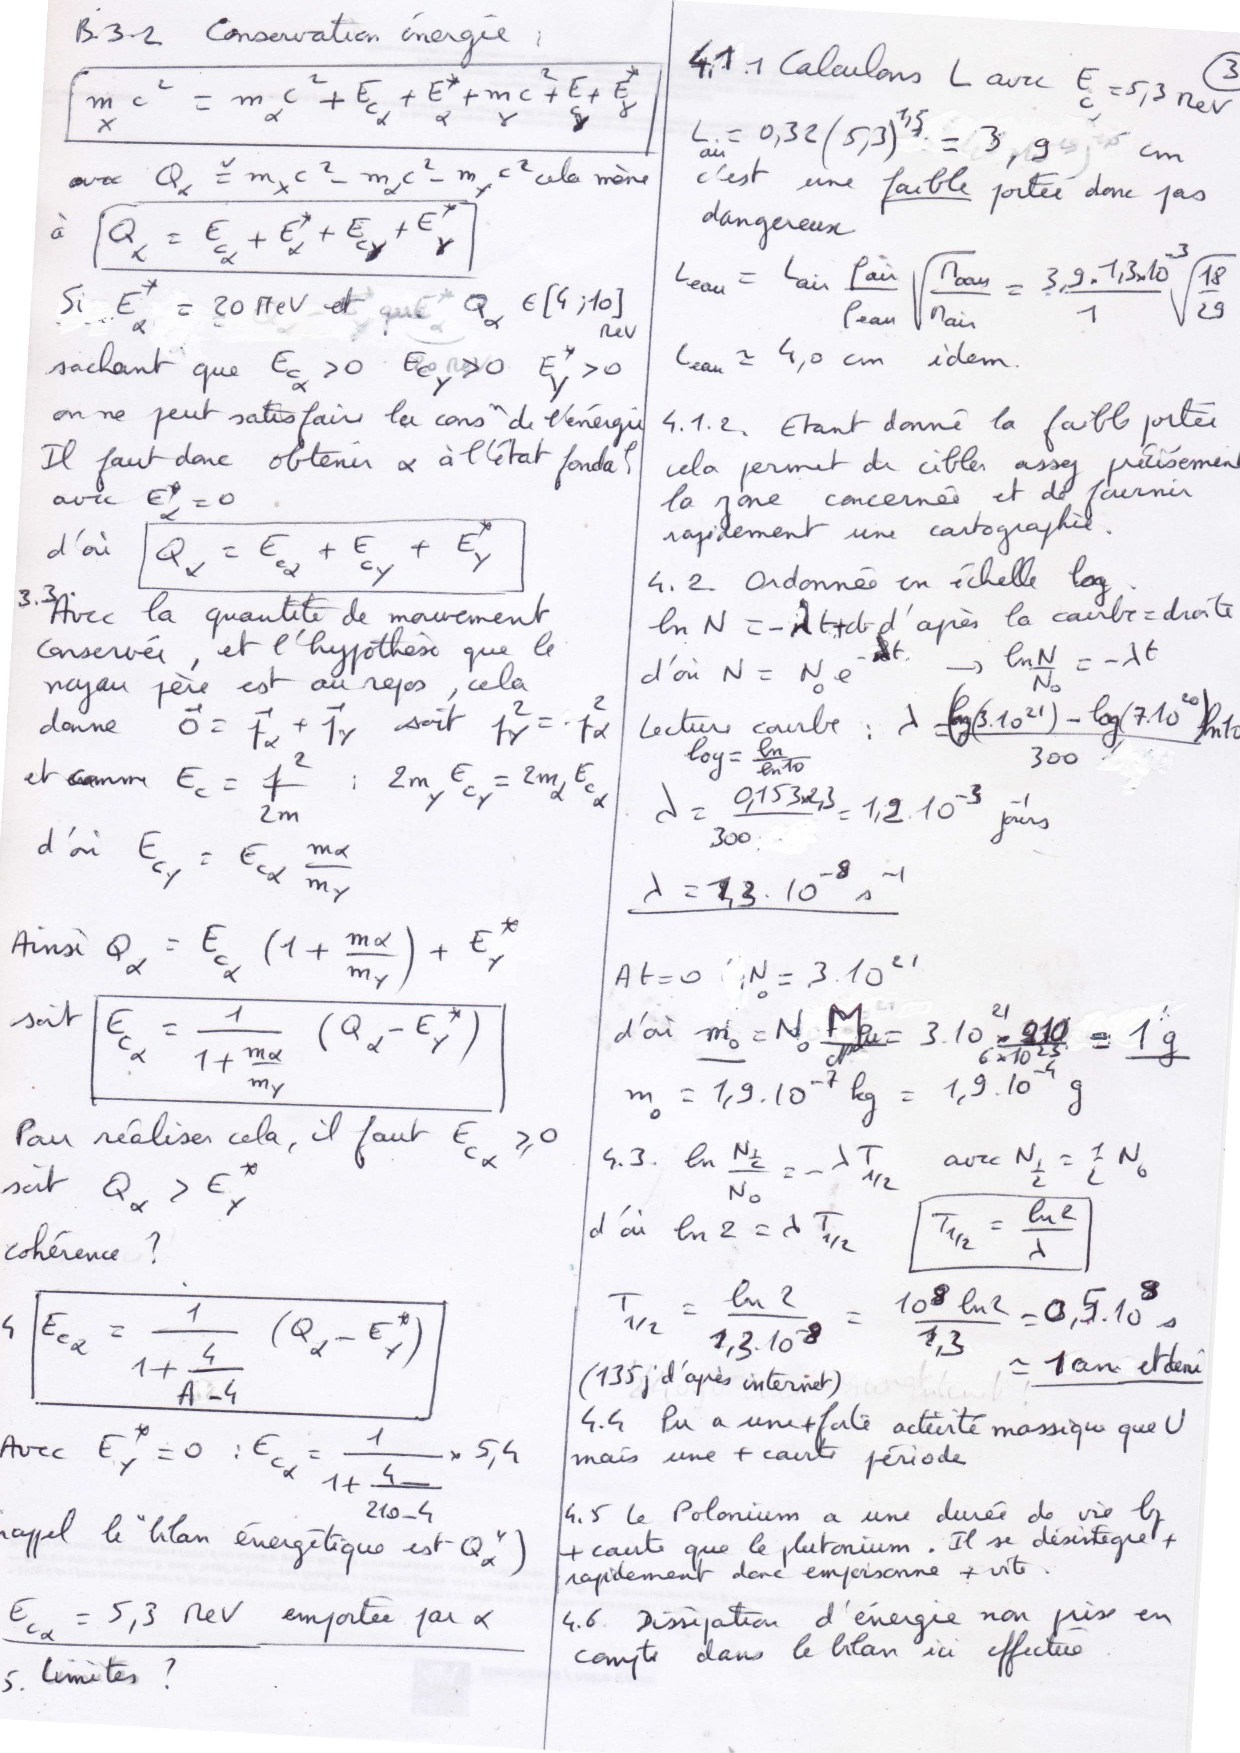 B.3-2 Conservation énergie :
m_X c² = m_α c² + E_cα + E*_α + m_Y c² + E_cY + E*_Y
avec Q_α = m_X c² - m_α c² - m_Y c² cela mène
à Q_α = E_cα + E*_α + E_cY + E*_Y
Si E*_α = 20 MeV et que Q_α ∈ [4 ; 10] MeV
sachant que E_cα > 0 E_cY > 0 E*_Y > 0
on ne peut satisfaire la cons^n de l'énergie
Il faut donc obtenir α à l'état fondal
avec E*_α = 0
d'où Q_α = E_cα + E_cY + E*_Y
3.3. Avec la quantité de mouvement
conservée, et l'hypothèse que le
noyau père est au repos, cela
donne 0⃗ = p⃗_α + p⃗_Y soit p²_Y = p²_α
et comme E_c = p²/2m ; 2m_Y E_cY = 2m_α E_cα
d'où E_cY = E_cα m_α/m_Y
Ainsi Q_α = E_cα (1 + m_α/m_Y) + E*_Y
soit E_cα = 1/(1 + m_α/m_Y) (Q_α - E*_Y)
Pour réaliser cela, il faut E_cα ≥ 0
soit Q_α > E*_Y
cohérence ?
4 E_cα = 1/(1 + 4/(A-4)) (Q_α - E*_Y)
Avec E*_Y = 0 : E_cα = 1/(1 + 4/(210-4)) × 5,4
rappel le "bilan énergétique est Q_α")
E_cα = 5,3 MeV emportée par α
5. limites ?
3
4.1.1 Calculons L avec E_c = 5,3 MeV
L_air = 0,32 (5,3)^1,5 = 3,9 cm
c'est une faible portée donc pas
dangereux
L_eau = L_air ρ_air/ρ_eau √(M_eau/M_air) = 3,9 . 1,3×10^-3/1 √(18/29)
L_eau ≈ 4,0 cm idem.
4.1.2. Etant donné la faible portée
cela permet de cibler assez précisément
la zone concernée et de fournir
rapidement une cartographie.
4.2 Ordonnée en échelle log.
ln N = -λt + cte d'après la courbe = droite
d'où N = N_0 e^-λt. → ln N/N_0 = -λt
Lecture courbe : λ = (log(3.10^21) - log(7.10^20)) ln10 / 300
log = ln/ln10
λ = 0,153×2,3/300 = 1,2.10^-3 jours^-1
λ = 1,3 . 10^-8 s^-1
A t=0 ; N_0 = 3.10^21
d'où m_0 = N_0 M = 3.10^21 × 210/6×10^23 = 1 g
m_0 = 1,9.10^-7 kg = 1,9.10^-4 g
4.3. ln N_½/N_0 = -λ T_1/2 avec N_½ = ½ N_0
d'où ln 2 = λ T_1/2 T_1/2 = ln2/λ
T_1/2 = ln 2/1,3.10^-8 = 10^8 ln2/1,3 = 0,5.10^8 s
≈ 1 an et demi
(135 j d'après internet)
4.4 Pu a une + forte activité massique que U
mais une + courte période
4.5 Le Polonium a une durée de vie bp
+ courte que le plutonium. Il se désintègre +
rapidement donc empoisonne + vite.
4.6. Dissipation d'énergie non prise en
compte dans le bilan ici effectué.